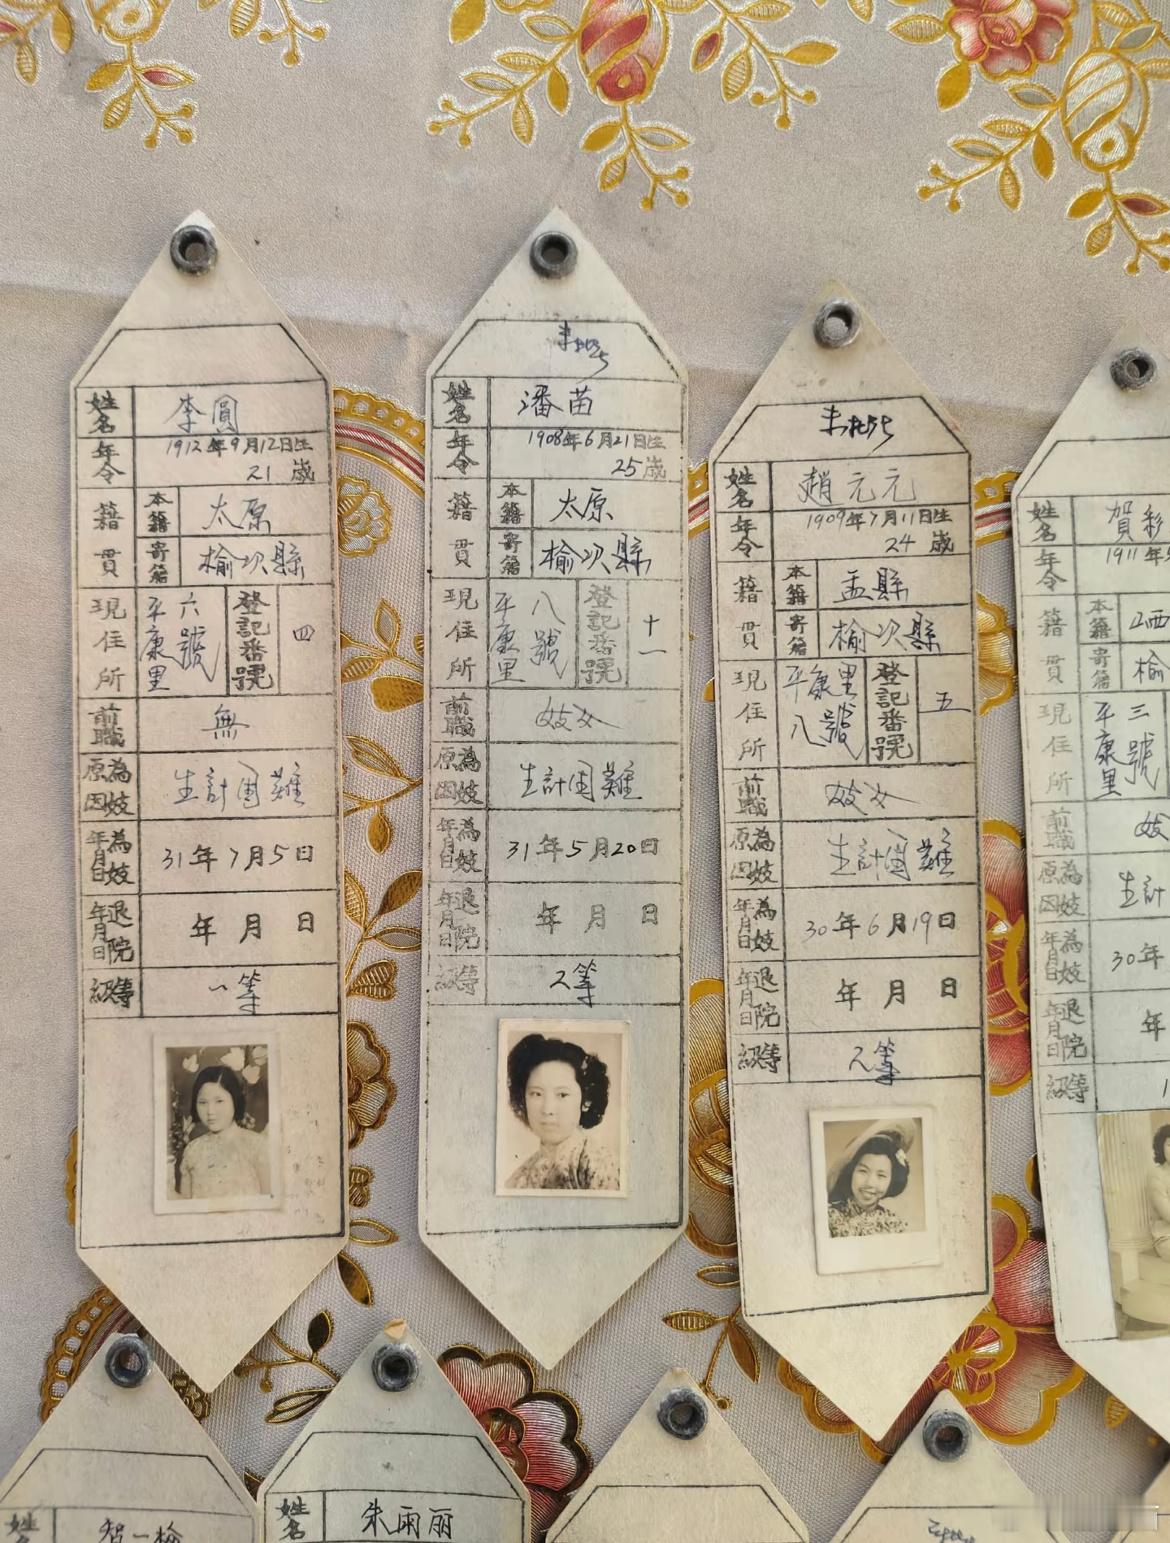 姓名 李圓
年令 1912年9月12日生
21歲
籍貫 本籍 太原
寄籍 榆次縣
現住所 平康里六號 登記番號 四
前職 無
為妓原因 生計困難
為妓年月日 31年7月5日
退院年月日 年月日
等級 一等
姓名 潘苗
年令 1908年6月21日生
25歲
籍貫 本籍 太原
寄籍 榆次縣
現住所 平康里八號 登記番號 十一
前職 妓女
為妓原因 生計困難
為妓年月日 31年5月20日
退院年月日 年月日
等級 2等
姓名 趙元元
年令 1909年7月11日生
24歲
籍貫 本籍 盂縣
寄籍 榆次縣
現住所 平康里八號 登記番號 五
前職 妓女
為妓原因 生計困難
為妓年月日 30年6月19日
退院年月日 年月日
等級 2等
姓名 賀彩
年令 1911年
籍貫 本籍
寄籍 榆
現住所 平康里三號
前職 妓
為妓原因 生計
為妓年月日 30年
退院年月日 年
等級 1
姓名
姓名 朱雨丽